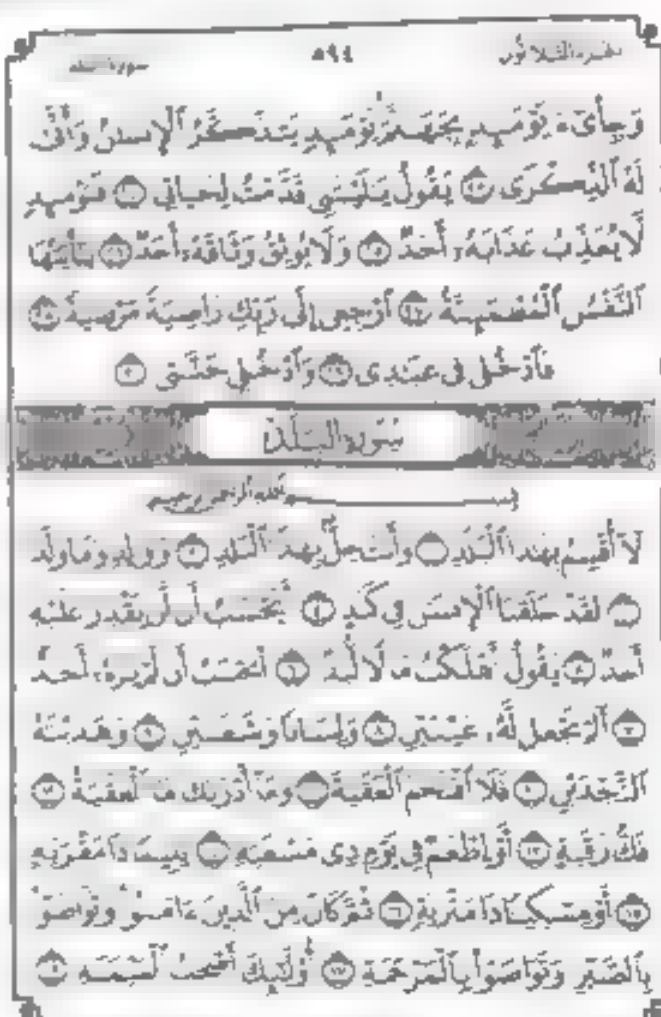 الجزء الثلاثون ٥٩٤ سورة البلد
وَجِاْىٓءَ يَوْمَئِذٍۭ بِجَهَنَّمَ يَوْمَئِذٍ يَتَذَكَّرُ ٱلْإِنسَٰنُ وَأَنَّىٰ
لَهُ ٱلذِّكْرَىٰ ٢٣ يَقُولُ يَٰلَيْتَنِى قَدَّمْتُ لِحَيَاتِى ٢٤ فَيَوْمَئِذٍ
لَّا يُعَذِّبُ عَذَابَهُۥٓ أَحَدٌ ٢٥ وَلَا يُوثِقُ وَثَاقَهُۥٓ أَحَدٌ ٢٦ يَٰٓأَيَّتُهَا
ٱلنَّفْسُ ٱلْمُطْمَئِنَّةُ ٢٧ ٱرْجِعِىٓ إِلَىٰ رَبِّكِ رَاضِيَةً مَّرْضِيَّةً ٢٨
فَٱدْخُلِى فِى عِبَٰدِى ٢٩ وَٱدْخُلِى جَنَّتِى ٣٠
سُورَةُ البَلَدِ
بِسْمِ ٱللَّهِ ٱلرَّحْمَٰنِ ٱلرَّحِيمِ
لَآ أُقْسِمُ بِهَٰذَا ٱلْبَلَدِ ١ وَأَنتَ حِلٌّۢ بِهَٰذَا ٱلْبَلَدِ ٢ وَوَالِدٍ وَمَا وَلَدَ
٣ لَقَدْ خَلَقْنَا ٱلْإِنسَٰنَ فِى كَبَدٍ ٤ أَيَحْسَبُ أَن لَّن يَقْدِرَ عَلَيْهِ
أَحَدٌ ٥ يَقُولُ أَهْلَكْتُ مَالًا لُّبَدًا ٦ أَيَحْسَبُ أَن لَّمْ يَرَهُۥٓ أَحَدٌ
٧ أَلَمْ نَجْعَل لَّهُۥ عَيْنَيْنِ ٨ وَلِسَانًا وَشَفَتَيْنِ ٩ وَهَدَيْنَٰهُ
ٱلنَّجْدَيْنِ ١٠ فَلَا ٱقْتَحَمَ ٱلْعَقَبَةَ ١١ وَمَآ أَدْرَىٰكَ مَا ٱلْعَقَبَةُ ١٢
فَكُّ رَقَبَةٍ ١٣ أَوْ إِطْعَٰمٌ فِى يَوْمٍ ذِى مَسْغَبَةٍ ١٤ يَتِيمًا ذَا مَقْرَبَةٍ
١٥ أَوْ مِسْكِينًا ذَا مَتْرَبَةٍ ١٦ ثُمَّ كَانَ مِنَ ٱلَّذِينَ ءَامَنُوا۟ وَتَوَاصَوْا۟
بِٱلصَّبْرِ وَتَوَاصَوْا۟ بِٱلْمَرْحَمَةِ ١٧ أُو۟لَٰٓئِكَ أَصْحَٰبُ ٱلْمَيْمَنَةِ ١٨